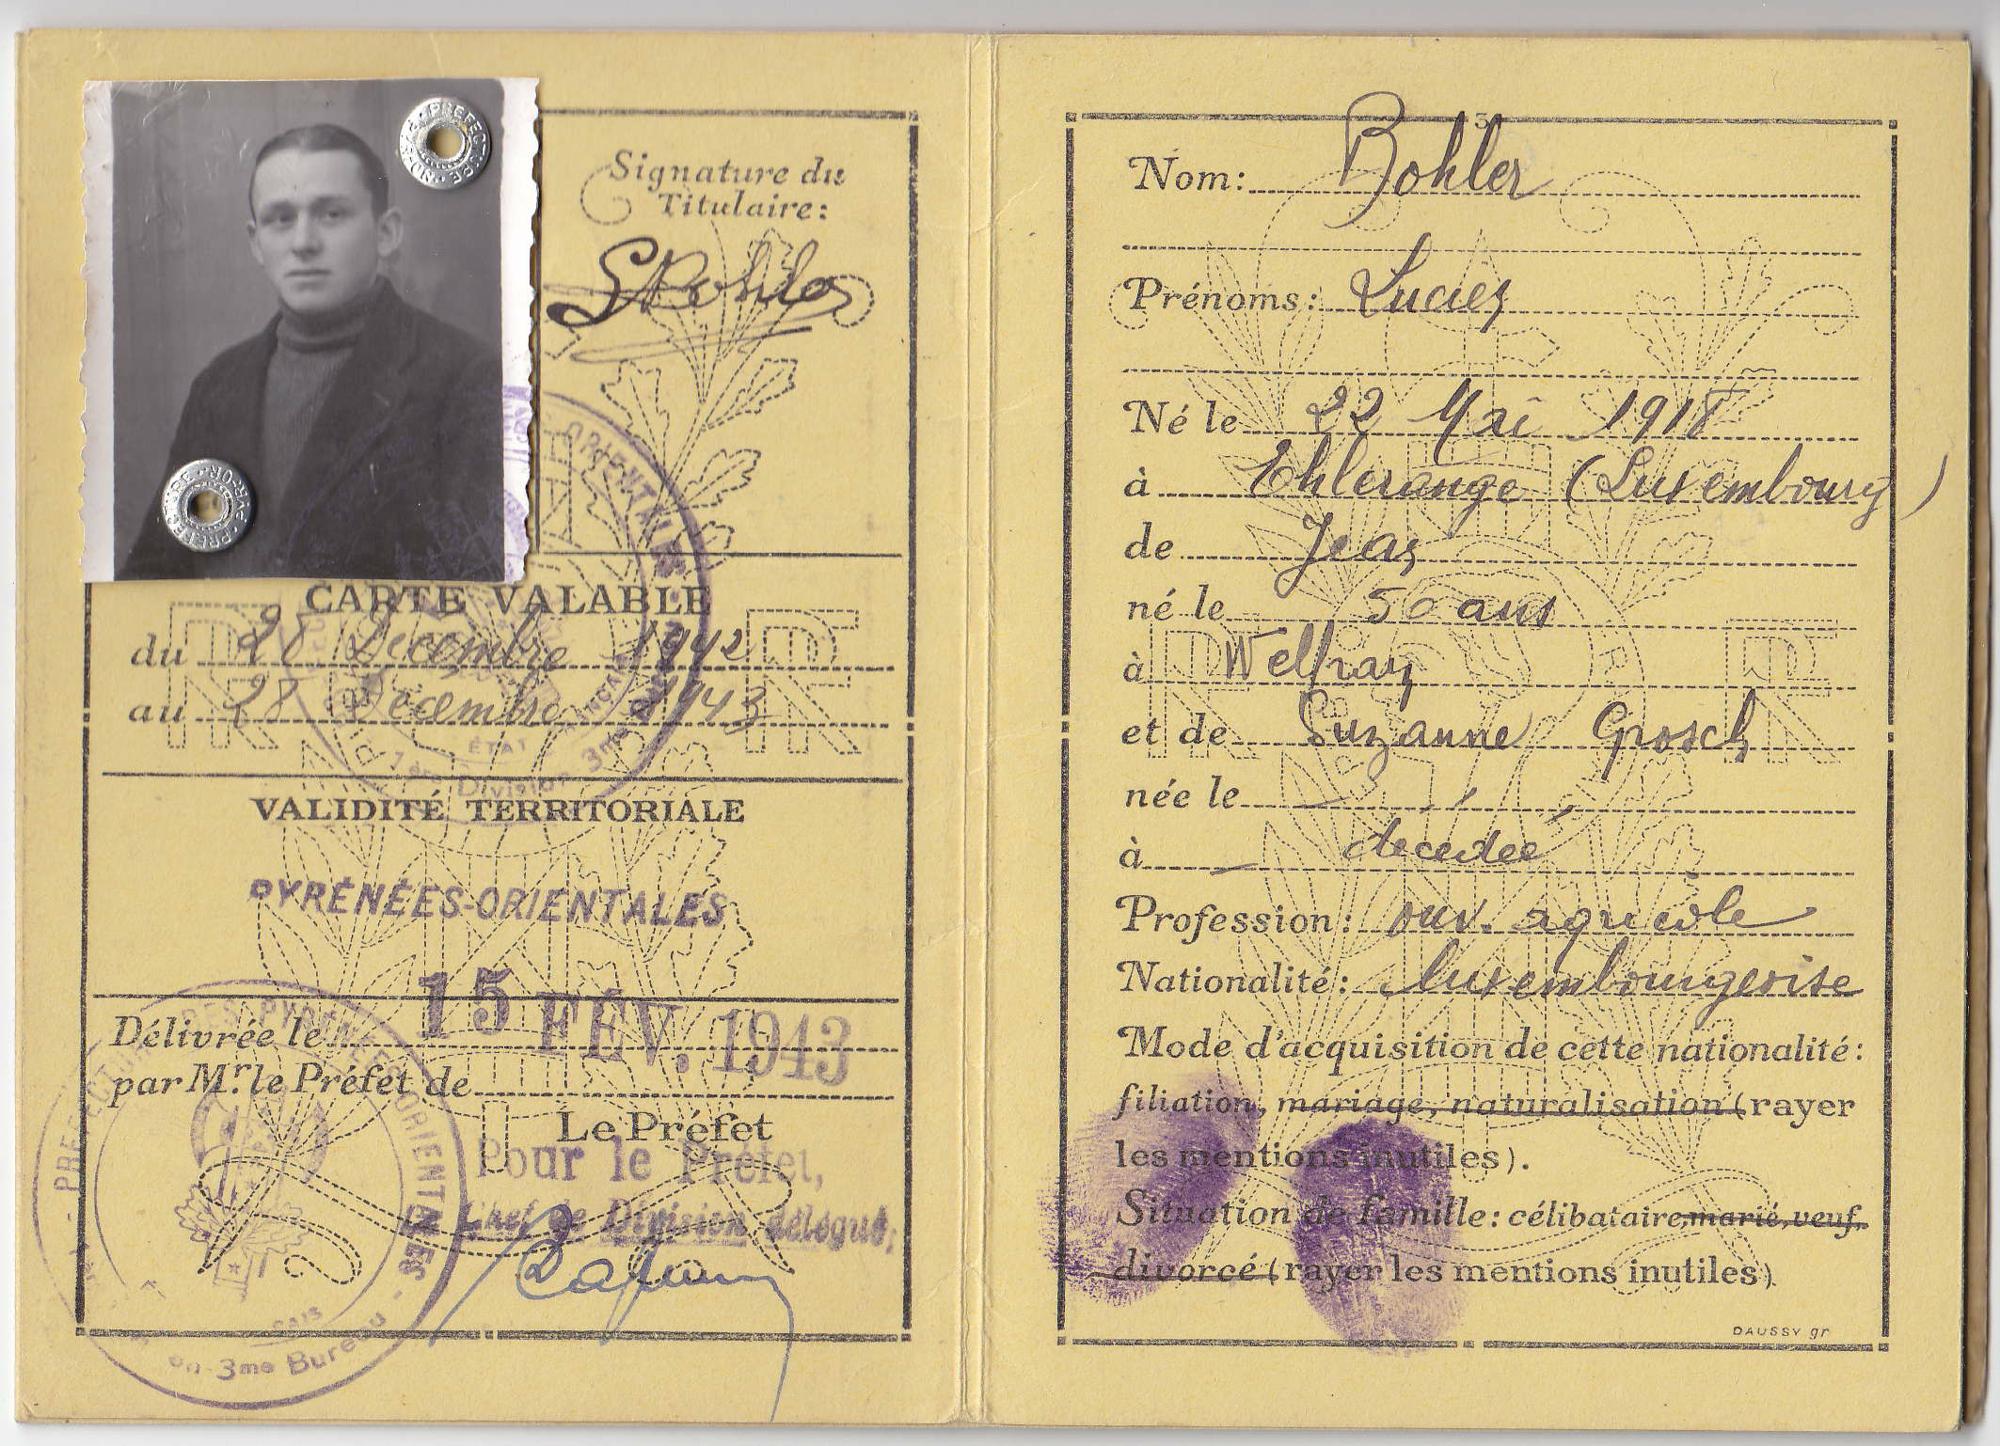 PREFECTURE
Signature du
Titulaire:
CARTE VALABLE
du 28 Decembre 1942
au 28 Decembre 1943
ÉTAT
1ère Division 3me
VALIDITÉ TERRITORIALE
PYRÉNÉES-ORIENTALES
Délivrée le 15 FÉV. 1943
par Mr. le Préfet de
Le Préfet
Pour le Préfet,
Le Chef de Division délégué,
3me Bureau
3
Nom: Bohler
Prénoms: Lucien
Né le 22 Mai 1918
à Ehlerange (Luxembourg)
de Jean
né le 50 ans
à
et de Suzanne Grosch
née le
à décédée
Profession: ouv. agricole
Nationalité: luxembourgeoise
Mode d'acquisition de cette nationalité:
filiation, mariage, naturalisation (rayer
les mentions inutiles).
Situation de famille: célibataire, marié, veuf,
divorcé (rayer les mentions inutiles)
DAUSSY gr